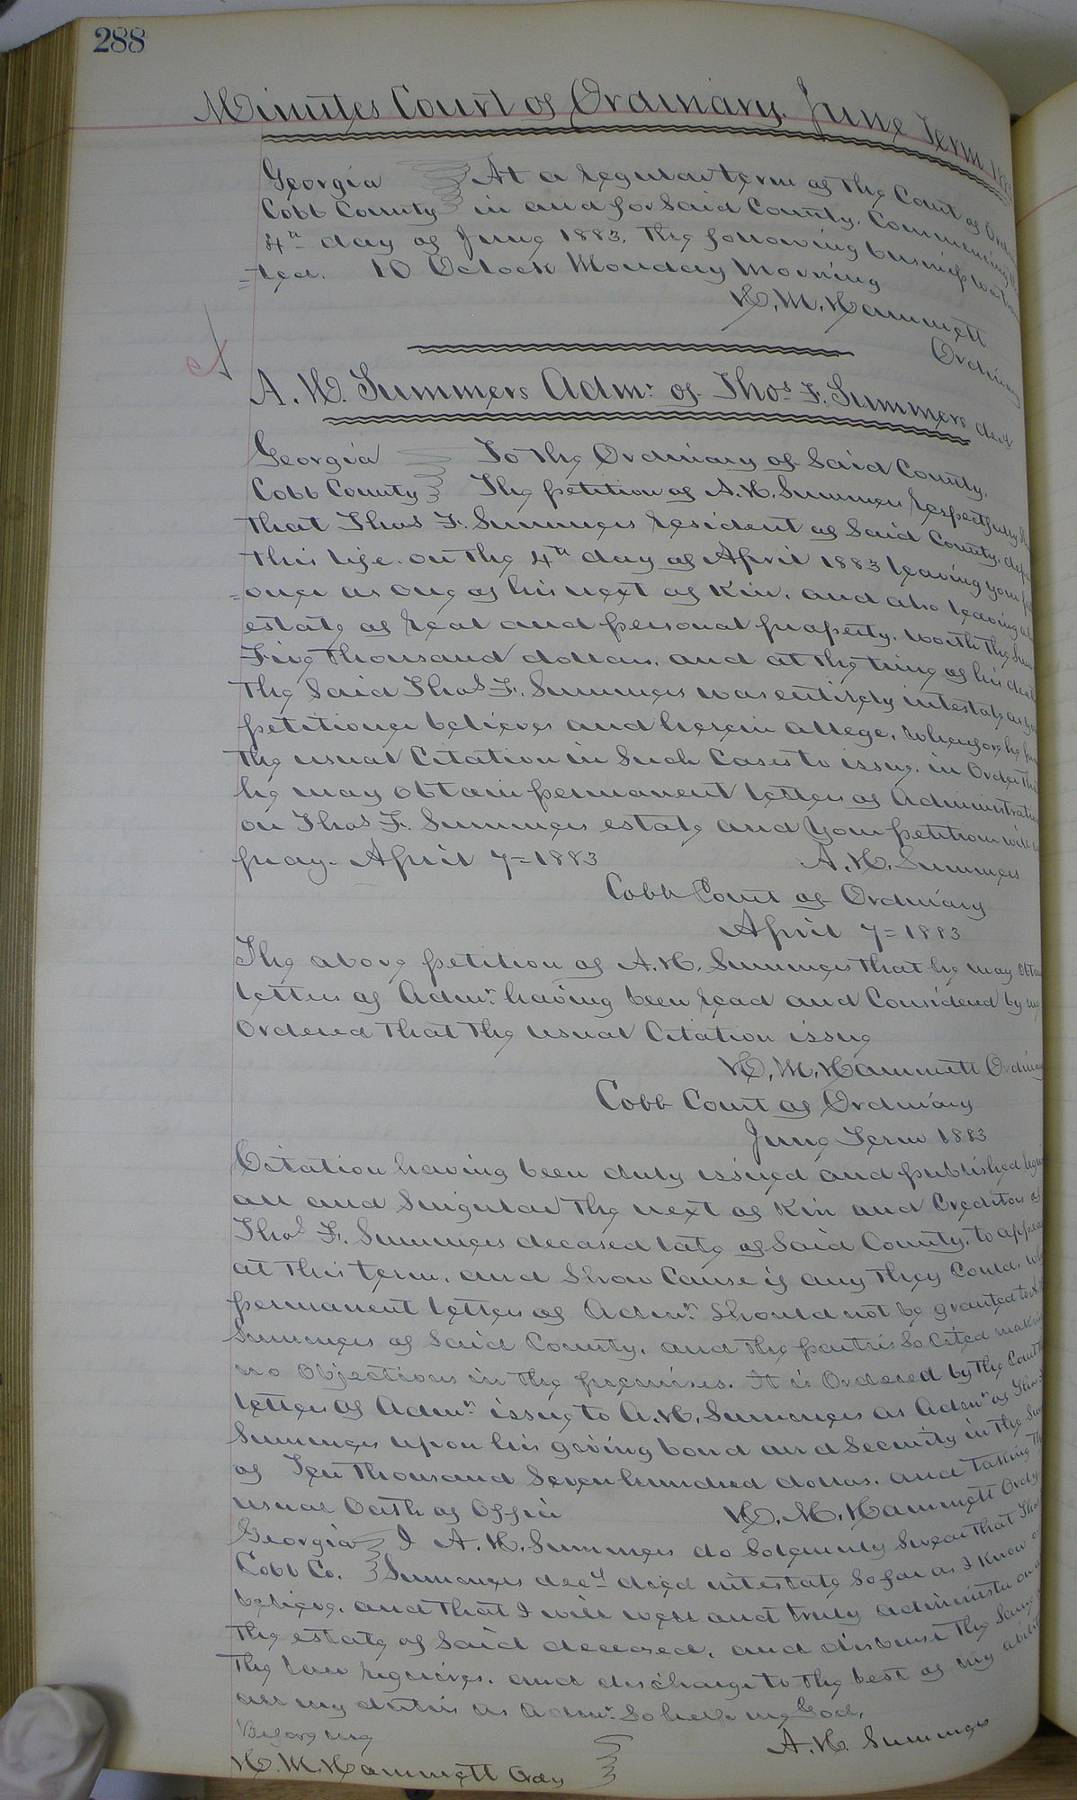 288
Minutes Court of Ordinary. June Term
Georgia At a regular term of the Court of
Cobb County in and for Said County, Commencing
4th day of June 1883. The following business
=ted. 10 Oclock Monday Morning
H. M. Hammett
Ordinary
A. H. Summers Admr. of Thos. F. Summers decd
Georgia To the Ordinary of Said County.
Cobb County The petition of A. H. Summers respectfully
that Thos F. Summers resident of Said County,
this life. on the 4th day of April 1883 leaving your
=oner as one of his next of Kin. and also leaving
estate of real and personal property. worth the Sum
Five thousand dollars. and at the time of his death
The Said Thos F. Summers was entirely intestate as
petitioner believes and herein allege. Wherefore he
the usual Citation in Such Cases to issue. in Order that
he may obtain permanent letters of Administration
on Thos F. Summers estate and your petition will
pray. April 7=1883 A. H. Summers
Cobb Court of Ordinary
April 7=1883
The above petition of A. H. Summers that he may obtain
letters of Admr. having been read and Considered by me
Ordered that the usual Citation issue
H. M. Hammett Ordinary
Cobb Court of Ordinary
June Term 1883
Citation having been duly issued and published
all and Singular the next of Kin and Creditors of
Thos F. Summers deceased late of Said County. to appear
at this term. and Show Cause if any they Could. why
permanent letters of Admn. Should not be granted to
Summers of Said County. and the parties So cited making
no Objections in the premises. It is Ordered by the Court
letters of Admn. issue to A. H. Summers as Admr of
Summers upon his giving bond and Security in the Sum
of Ten thousand Seven hundred dollars. and taking the
usual Oath of Office H. M. Hammett Ordy
Georgia I A. H. Summers do Solemnly Swear that
Cobb Co. Summers decd died intestate So far as I know or
believe. and that I will well and truly administer on
the estate of Said deceased. and disburse the Same
the law requires. and discharge to the best of my ability
all my duties as Admr. So help me God.
Before me A. H. Summers
H. M. Hammett Ordy